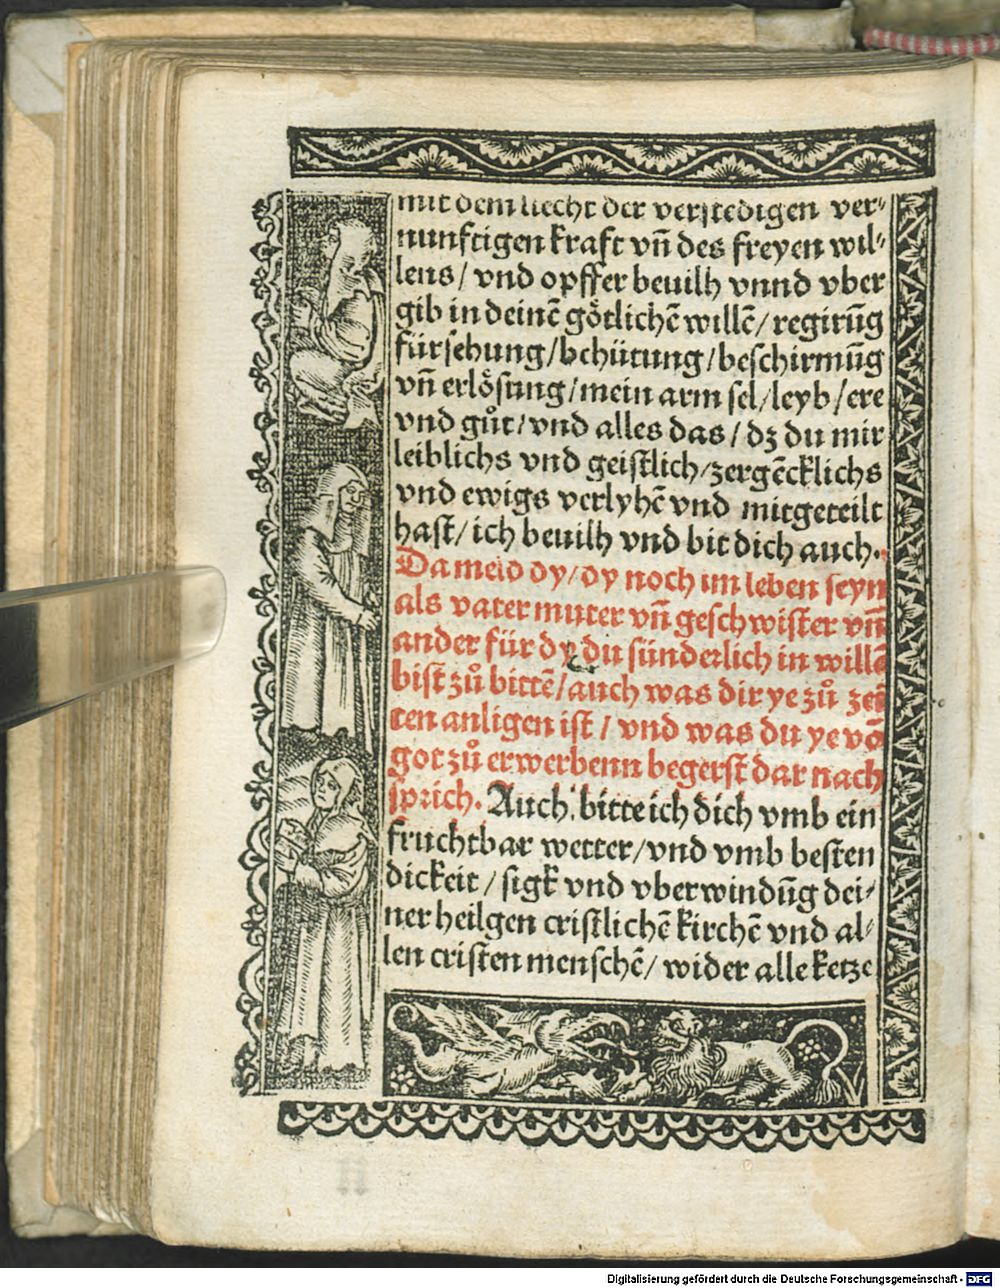 mit dem liecht der verstedigen ver⸗
nunfftigen kraft vn̄ des freyen wil⸗
lens/ vnd opffer beuilh vnnd vber
gib in deinē götlichē willē/ regirūg
fürsehung/bchütung/beschirmūg
vn̄ erlösung/mein arm sel/leyb/ere
vnd gůt/vnd alles das/ dz du mir
leiblichs vnd geistlich/zergēcklichs
vnd ewigs verlyhē vnd mitgeteilt
hast/ ich beuilh vnd bit dich auch.
Da meld dy/dy noch im leben seyn
als vater muter vn̄ geschwister vn̄
ander für dy du sünderlich in willē
bist zů bittē/auch was dir ye zů zei
ten anligen ist/ vnd was du ye vō
got zů erwerbenn begerst dar nach
sprich. Auch bitte ich dich vmb ein
fruchtbar wetter/vnd vmb besten
dickeit/ sigk vnd vberwindūg dei⸗
ner heilgen cristlichē kirchē vnd al⸗
len cristen menschē/ wider alle ketze
Digitalisierung gefördert durch die Deutsche Forschungsgemeinschaft - DFG